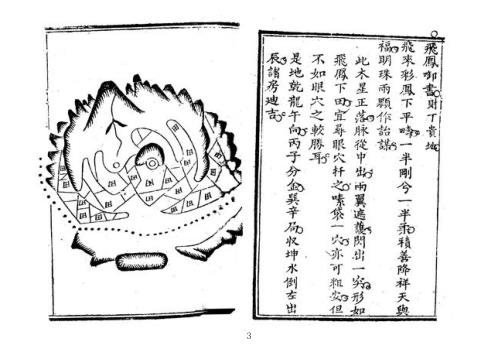 飛鳳啣書 財丁貴地
飛來彩鳳下平疇一半剛兮一半柔積善降祥天與
福明珠兩顆作詒謀
此木星正落脉從中出兩翼遮護閃出一突形如
飛鳳下田宜尋眼穴扦之嗉袋一穴亦可粗安但
不如眼穴之較勝耳
是地乾龍午向丙子分金巽辛局收坤水倒左出
辰諸房迪吉
田
田
田
田
田
田
田
田
田
田
田
田
3